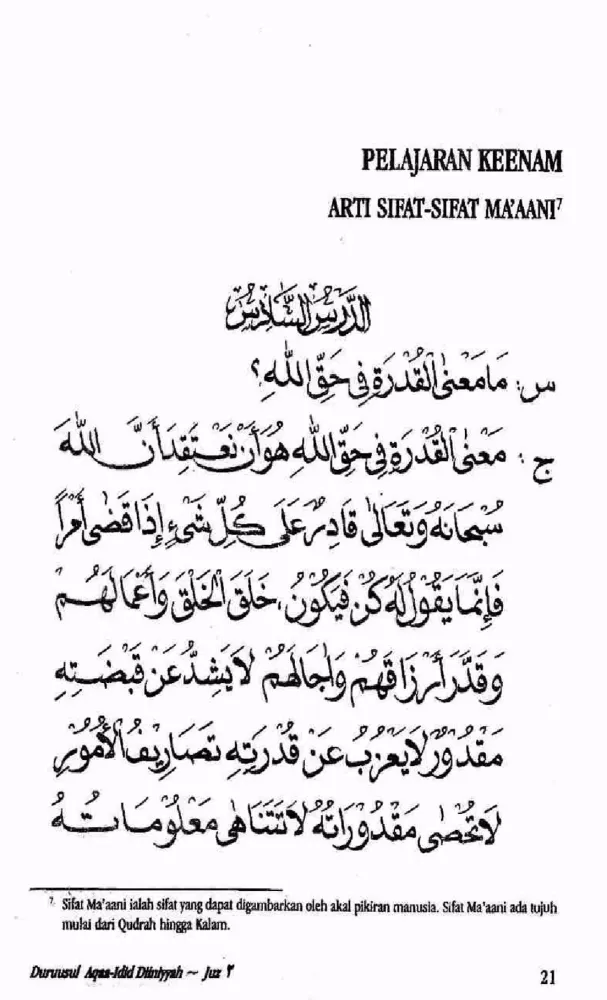 PELAJARAN KEENAM
ARTI SIFAT-SIFAT MA'AANI⁷
الدَّرْسُ السَّادِسُ
س : مَا مَعْنَى الْقُدْرَةِ فِي حَقِّ اللهِ؟
ج : مَعْنَى الْقُدْرَةِ فِي حَقِّ اللهِ هُوَ أَنْ نَعْتَقِدَ أَنَّ اللهَ
سُبْحَانَهُ وَتَعَالَى قَادِرٌ عَلَى كُلِّ شَيْءٍ إِذَا قَضَى أَمْرًا
فَإِنَّمَا يَقُولُ لَهُ كُنْ فَيَكُونُ، خَلَقَ الْخَلْقَ وَأَعْمَالَهُمْ
وَقَدَّرَ أَرْزَاقَهُمْ وَآجَالَهُمْ لَا يَشِذُّ عَنْ قَبْضَتِهِ
مَقْدُورٌ لَا يَعْزُبُ عَنْ قُدْرَتِهِ تَصَارِيفُ الْأُمُورِ
لَا تُحْصَى مَقْدُورَاتُهُ لَا تَتَنَاهَى مَعْلُومَاتُهُ
⁷ Sifat Ma'aani ialah sifat yang dapat digambarkan oleh akal pikiran manusia. Sifat Ma'aani ada tujuh
mulai dari Qudrah hingga Kalam.
Duruusul Aqaa-idid Diiniyyah ~ Juz ٣
21